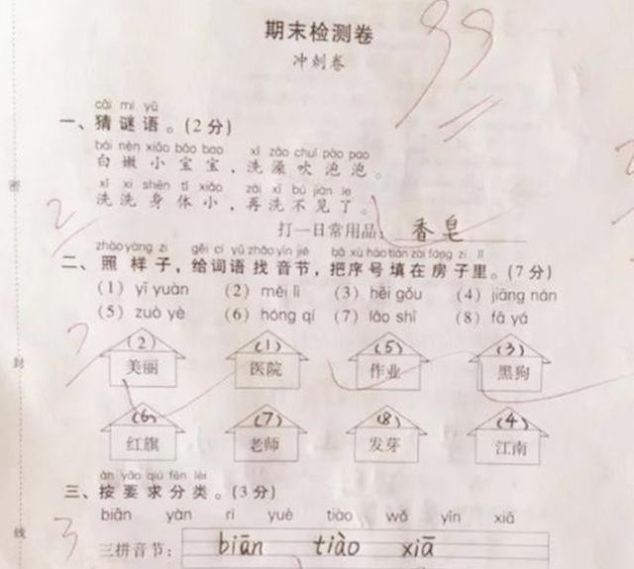 期末检测卷
冲刺卷
99
cāi mí yǔ
一、猜谜语。(2分)
bái nèn xiǎo bǎo bao xǐ zǎo chuī pào pao
白嫩小宝宝,洗澡吹泡泡。
xǐ xi shēn tǐ xiǎo zài xǐ bú jiàn le
洗洗身体小,再洗不见了。
打一日常用品: 香皂
2
zhào yàng zi gěi cí yǔ zhǎo yīn jié bǎ xù hào tián zài fáng zi lǐ
二、照样子,给词语找音节,把序号填在房子里。(7分)
(1) yī yuàn (2) měi lì (3) hēi gǒu (4) jiāng nán
(5) zuò yè (6) hóng qí (7) lǎo shī (8) fā yá
7
(2) (1) (5) (3)
美丽 医院 作业 黑狗
(6) (7) (8) (4)
红旗 老师 发芽 江南
àn yāo qiú fēn lèi
三、按要求分类。(3分)
biān yàn rì yuè tiào wǒ yīn xiā
3
三拼音节: biān tiào xiā
密
封
线